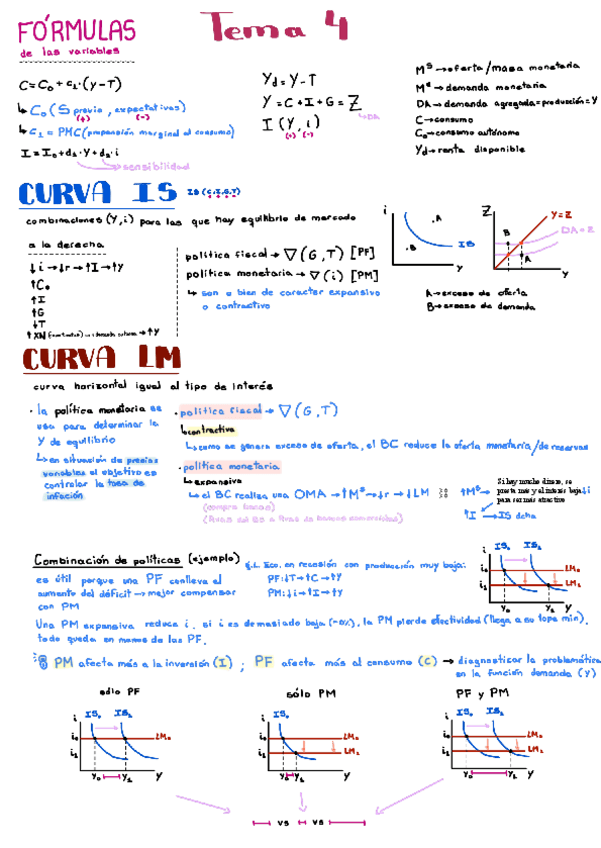 FÓRMULAS
de las variables
Tema 4
C = C₀ + c₁·(Y-T)
↳ C₀ (S previo, expectativas)
(+) (-)
↳ c₁ = PMC (propensión marginal al consumo)
I = I₀ + d₁·Y + d₂·i
sensibilidad
Yd = Y - T
Y = C + I + G = Z
↳ DA
I (Y, i)
(+) (-)
Mˢ → oferta/masa monetaria
Mᵈ → demanda monetaria
DA → demanda agregada = producción = Y
C → consumo
C₀ → consumo autónomo
Yd → renta disponible
CURVA IS
IS (C, I, G, T)
combinaciones (Y, i) para las que hay equilibrio de mercado
a la derecha
↓i → ↓r → ↑I → ↑Y
↑C₀
↑I
↑G
↓T
↑XN → ↑Y
política fiscal → ∇ (G, T) [PF]
política monetaria → ∇ (i) [PM]
↳ son o bien de caracter expansivo
o contractivo
i
.A
.B
IS
Y
Z
Y=Z
DA=Z
B
A
Y
A → exceso de oferta
B → exceso de demanda
CURVA LM
curva horizontal igual al tipo de interés
· la política monetaria se
usa para determinar la
Y de equilibrio
↳ en situación de precios
variables el objetivo es
controlar la tasa de
inflación
· política fiscal → ∇ (G, T)
↳ contractiva
↳ como se genera exceso de oferta, el BC reduce la oferta monetaria/de reservas
· política monetaria
↳ expansiva
↳ el BC realiza una OMA → ↑Mˢ → ↓r → ↓LM
(compra bonos)
↑Mˢ →
Si hay mucho dinero, se
presta más y el interés baja ↓i
para ser más atractivo
↑I → IS dcha
Combinación de políticas (ejemplo)
es útil porque una PF conlleva el
aumento del déficit → mejor compensar
con PM
E.j. Eco. en recesión con producción muy baja:
PF: ↓T → ↑C → ↑Y
PM: ↓i → ↑I → ↑Y
i
IS₀ IS₁
i₀
LM₀
i₁
LM₁
Y₀ Y₁ Y
Una PM expansiva reduce i, si i es demasiado baja (~0%), la PM pierde efectividad (llega a su tope mín),
todo queda en manos de las PF.
PM afecta más a la inversión (I) ; PF afecta más al consumo (C) → diagnosticar la problemática
en la función demanda (Y)
sólo PF
i
IS₀ IS₁
i₀
LM₀
i₁
Y₀ Y₁ Y
sólo PM
i
IS₀
i₀
LM₀
i₁
LM₁
Y₀ Y₁ Y
PF y PM
i
IS₀ IS₁
i₀
LM₀
i₁
LM₁
Y₀ Y₁ Y
vs vs